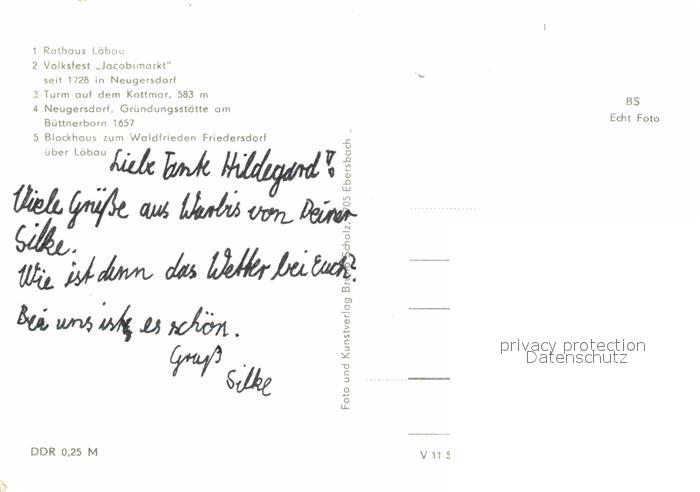 1 Rathaus Löbau
2 Volksfest „Jacobimarkt"
seit 1728 in Neugersdorf
3 Turm auf dem Kottmar, 583 m
4 Neugersdorf, Gründungsstätte am
Büttnerborn 1657
5 Blockhaus zum Waldfrieden Friedersdorf
über Löbau
Liebe Tante Hildegard!
Viele Grüße aus Warbis von Deiner
Silke.
Wie ist denn das Wetter bei Euch?
Bei uns ist es schön.
Gruß
Silke
DDR 0,25 M
Foto und Kunstverlag Scholz, Ebersbach
BS
Echt Foto
privacy protection
Datenschutz
V 11